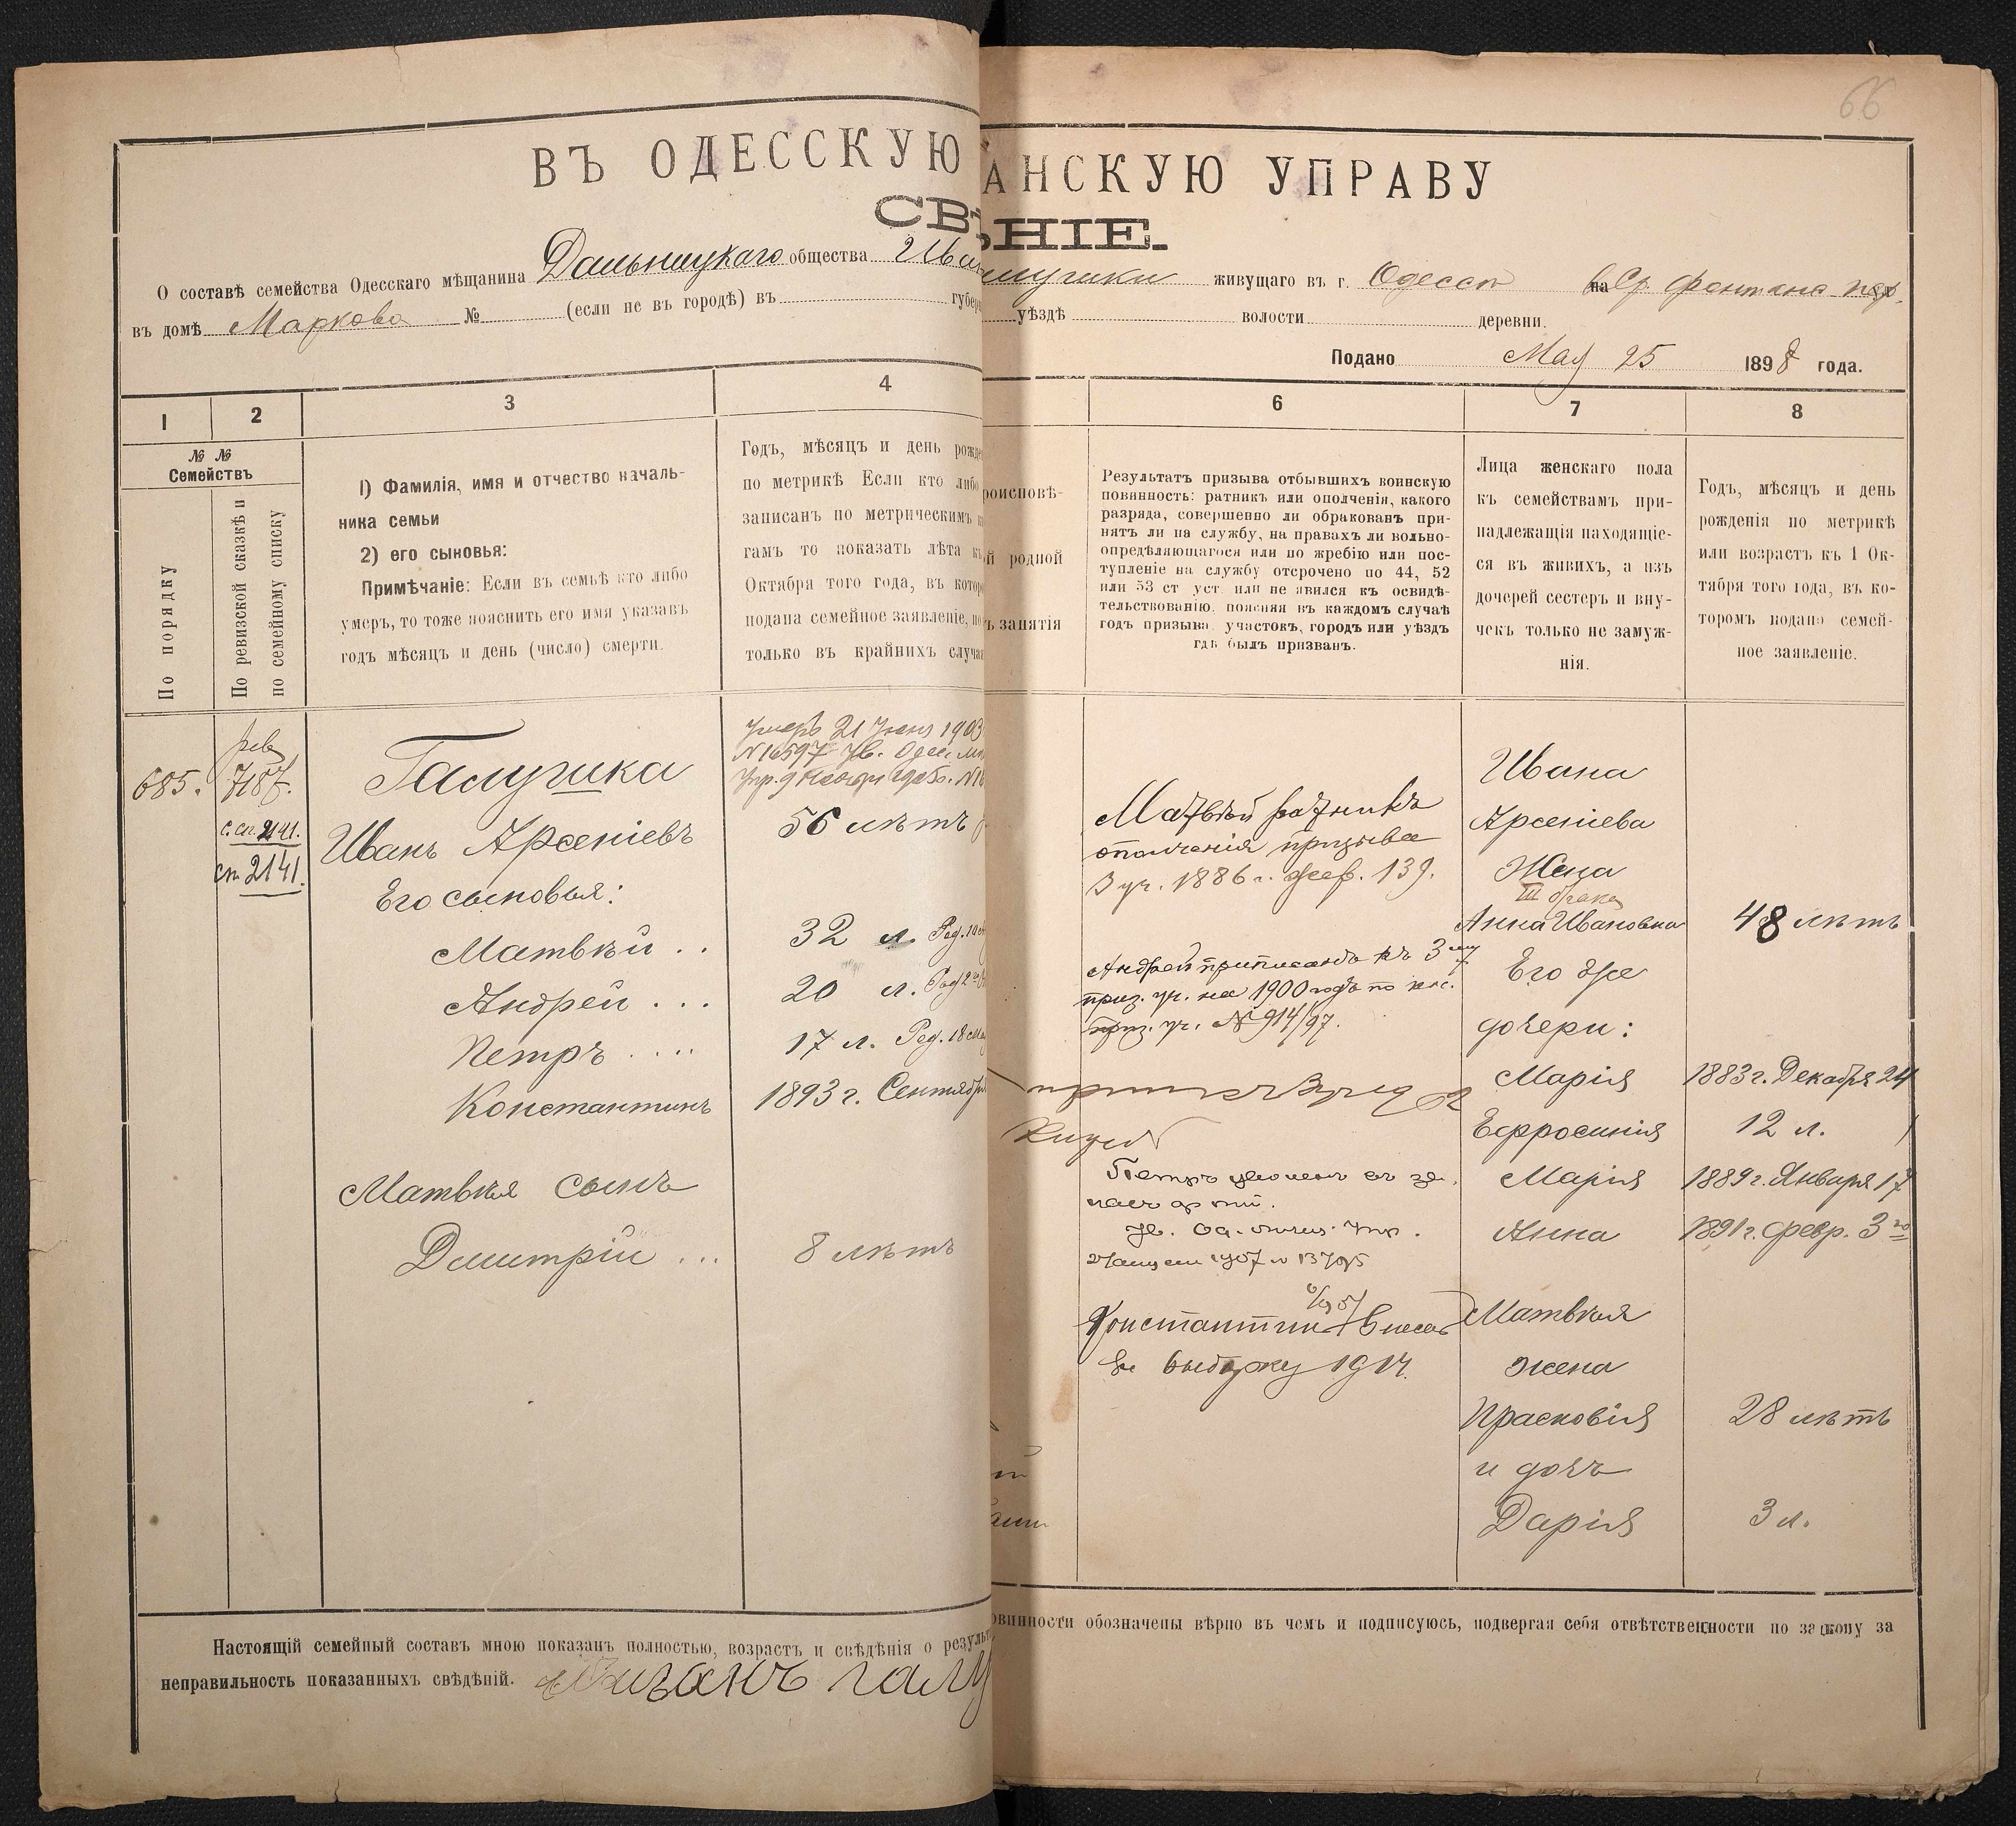 66
ВЪ ОДЕССКУЮ
АНСКУЮ УПРАВУ
СВѢ
ѢНІЕ.
О составѣ семейства Одесскаго мѣщанина Дальницкаго общества Ива
лушки живущаго въ г. Одессѣ на Ср фонтанѣ
въ домѣ Маркова № (если не въ городѣ) въ губер
уѣздѣ волости деревни.
Подано Мая 25 1898 года.
1
2
3
4
6
7
8
№ №
Семействъ
По порядку
По ревизской сказкѣ и
по семейному списку
1) Фамилія, имя и отчество началь-
ника семьи
2) его сыновья:
Примѣчаніе: Если въ семьѣ кто либо
умеръ, то тоже пояснить его имя указавъ
годъ мѣсяцъ и день (число) смерти.
Годъ, мѣсяцъ и день рожде
по метрикѣ Если кто либо
записанъ по метрическимъ к
гамъ то показать лѣта къ
Октября того года, въ котор
подана семейное заявленіе, но
только въ крайнихъ случа
роисповѣ-
й родной
ъ занятія
Результатъ призыва отбывшихъ воинскую
повинность: ратникъ или ополченія, какого
разряда, совершенно ли обракованъ при-
нятъ ли на службу, на правахъ ли вольно-
опредѣляющагося или по жребію или пос-
тупленіе на службу отсрочено по 44, 52
или 53 ст уст или не явился къ освидѣ-
тельствованію. поясняя въ каждомъ случаѣ
годъ призыва участокъ, городъ или уѣздъ
гдѣ былъ призванъ.
Лица женскаго пола
къ семействамъ при-
надлежащія находящіе-
ся въ живихъ, а изъ
дочерей сестеръ и вну-
чекъ только не замуж-
нія.
Годъ, мѣсяцъ и день
рожденія по метрикѣ
или возрастъ къ 1 Ок-
тября того года, въ ко-
торомъ подано семей-
ное заявленіе.
685.
рев
7187.
с. сп. 2141.
сп 2141.
Галушка
Иванъ Арсеніевъ
Его сыновья:
Матвѣй . .
Андрей . . .
Петръ . . . .
Константинъ
Матвѣя сынъ
Дмитрій . . .
Умеръ 21 Іюня 1903
№16597 Ув. Одес. Мѣ
56 лѣтъ
32 л. Род. 10
20 л. Род 2
17 л. Род. 18
1893 г. Сентября
8 лѣтъ
Матвѣй ратникъ
ополченія призыва
3 уч. 1886 г. 139.
Андрей приписанъ къ 3му
приз. уч. на 1900 годъ по
приз. уч. № 914/97.
Петръ уволенъ въ за
пасъ
Ув. Од. Упр.
1907 №
Константин внесен
в выборку 1914.
Ивана
Арсеніева
Жена
III брака
Анна Ивановна
Его же
дочери:
Марія
Ефросинія
Марія
Анна
Матвѣя
жена
Прасковія
и дочь
Дарія
48 лѣтъ
1883 г. Декабря 24
12 л.
1889 г. Января 17
1891 г. февр. 3го
28 лѣтъ
3 л.
Настоящій семейный составъ мною показанъ полностью, возрастъ и свѣдѣнія о резуль
овинности обозначены вѣрно въ чемъ и подписуюсь, подвергая себя отвѣтственности по закону за
неправильность показанныхъ свѣдѣній. Иванъ галу